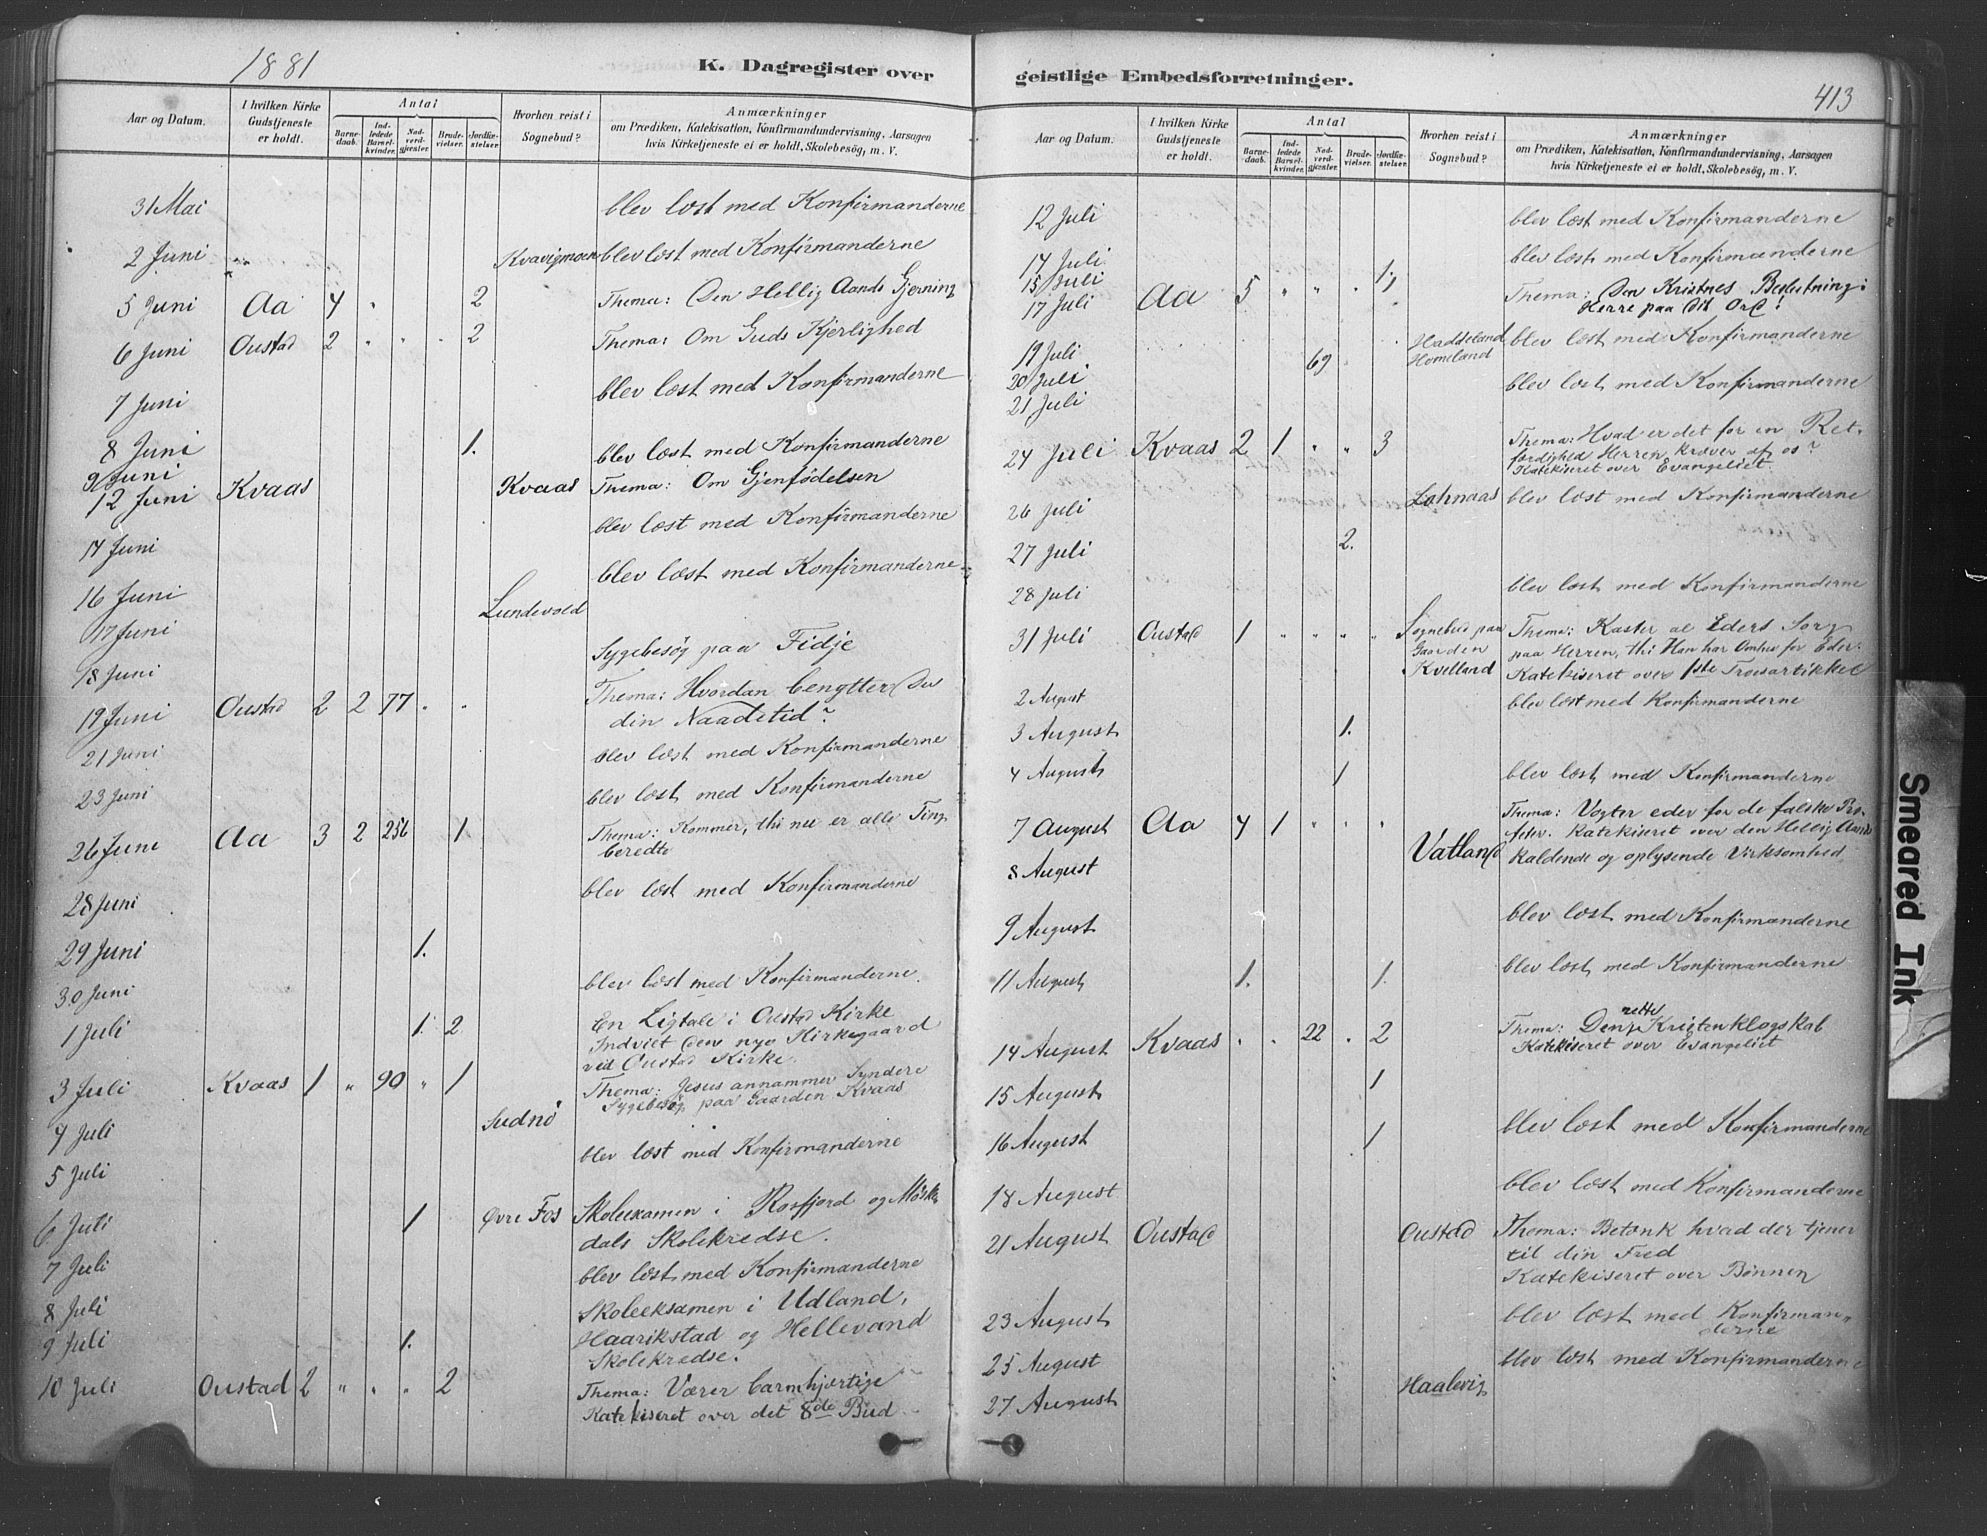 1881
K. Dagregister over
Aar og Datum.
I hvilken Kirke Gudstjeneste er holdt.
Antal
Barne-daab.
Ind-ledede Barsel-kvinder.
Nad-verd-gjæster.
Brude-vielser.
Jordfæ-stelser.
Hvorhen reist i Sognebud?
Anmærkninger
om Prædiken, Katekisation, Konfirmandundervisning, Aarsagen
hvis Kirketjeneste ei er holdt, Skolebesög, m. V.
31 Mai blev læst med Konfirmanderne
2 Juni Kvavigmoen blev læst med Konfirmanderne
5 Juni Aa 4 " 2 Thema: Den Hellig Aands Gjerning
6 Juni Oustad 2 " " " 2 Thema: Om Guds Kjerlighed
7 Juni blev læst med Konfirmanderne
8 Juni 1. blev læst med Konfirmanderne
9 Juni
12 Juni Kvaas Kvaas Thema: Om Gjenfödelsen
14 Juni blev læst med Konfirmanderne
16 Juni blev læst med Konfirmanderne
17 Juni Lundevold
18 Juni Sygebesög paa Fidje
19 Juni Oustad 2 2 77 " " Thema: Hvordan benytter du
din Naadetid?
21 Juni blev læst med Konfirmanderne
23 Juni blev læst med Konfirmanderne
26 Juni Aa 3 2 256 1 Thema: Kommer, thi nu er alle Ting
beredte
28 Juni blev læst med Konfirmanderne
29 Juni 1.
30 Juni blev læst med Konfirmanderne.
1 Juli 1. 2 En Ligtale i Oustad Kirke
Indviet den nye Kirkegaard
ved Oustad Kirke.
3 Juli Kvaas 1 " 90 " 1 Thema: Jesus annammer Syndere
Sygebesög paa Gaarden Kvaas
4 Juli Sudnö
5 Juli blev læst med Konfirmanderne
6 Juli 1 Øvre Fos Skoleexamen i Rosfjord og
dals Skolekredse.
7 Juli blev læst med Konfirmanderne
8 Juli Skoleeksamen i Udland,
9 Juli 1. Haarikstad og Hellevand
Skolekredse.
10 Juli Oustad 2 " " " 2 Thema: Værer barmhjertige
Katekiseret over det 8de Bud
geistlige Embedsforretninger.
413
Aar og Datum.
I hvilken Kirke Gudstjeneste er holdt.
Antal
Barne-daab.
Ind-ledede Barsel-kvinder.
Nad-verd-gjæster.
Brude-vielser.
Jordfæ-stelser.
Hvorhen reist i Sognebud?
Anmærkninger
om Prædiken, Katekisation, Konfirmandundervisning, Aarsagen
hvis Kirketjeneste ei er holdt, Skolebesög, m. V.
12 Juli blev læst med Konfirmanderne
14 Juli blev læst med Konfirmanderne
15 Juli 1
17 Juli Aa 5 " " " Thema: Den Kristnes Beslutning:
Herre paa dit Ord!
19 Juli 69 Haddeland Homeland blev læst med Konfirmanderne
20 Juli
21 Juli blev læst med Konfirmanderne
24 Juli Kvaas 2 1 " " 3 Thema: Hvad er det for en Ret-
færdighed Herren kræver af os?
Katekiseret over Evangeliet.
26 Juli blev læst med Konfirmanderne
27 Juli 2.
28 Juli blev læst med Konfirmanderne
31 Juli Oustad 1 " " " " Sognebud paa Gaarden Kvelland Thema: Kaster al Eders Sorg
paa Herren, thi Han har Omhu for Eder.
Katekiseret over 1ste Troesartikkel
2 August blev læst med Konfirmanderne
3 August 1.
4 August 1 blev læst med Konfirmanderne
7 August Aa 4 1 " " " Thema: Vogter eder for de falske Pro-
feter. Katekiseret over den Hellig Aands
kaldende og oplysende Virksomhed
8 August Vatland
9 August blev læst med Konfirmanderne
11 August 1. 1. blev læst med Konfirmanderne
14 August Kvaas " " 22 " 2 Thema: Den rette Kristenklogskab
Katekiseret over Evangeliet
15 August 1
16 August 1 blev læst med Konfirmanderne
18 August blev læst med Konfirmanderne
21 August Oustad Oustad Thema: Betænk hvad der tjener
til din Fred
Katekiseret over Bønnen
23 August blev læst med Konfirman-
derne
25 August blev læst med Konfirmanderne
27 August Haalevig
Smeared Ink